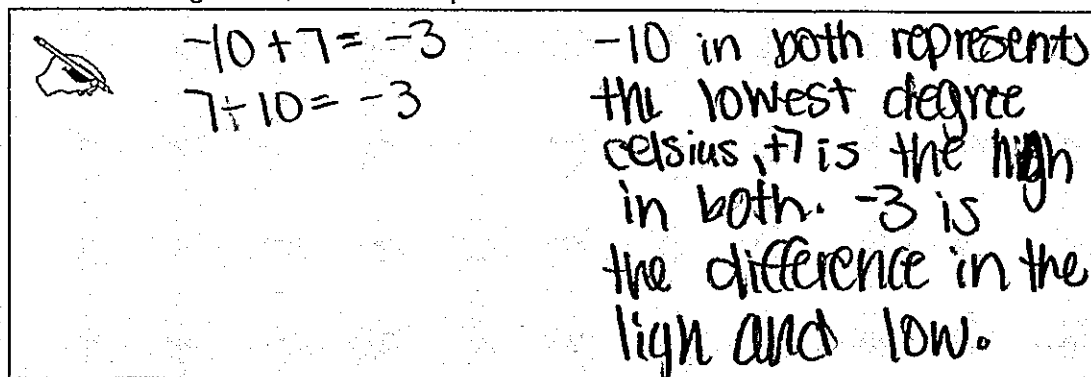 -10 + 7 = -3
7 - 10 = -3
-10 in both represents
the lowest degree
celsius, +7 is the high
in both. -3 is
the difference in the
ligh and low.